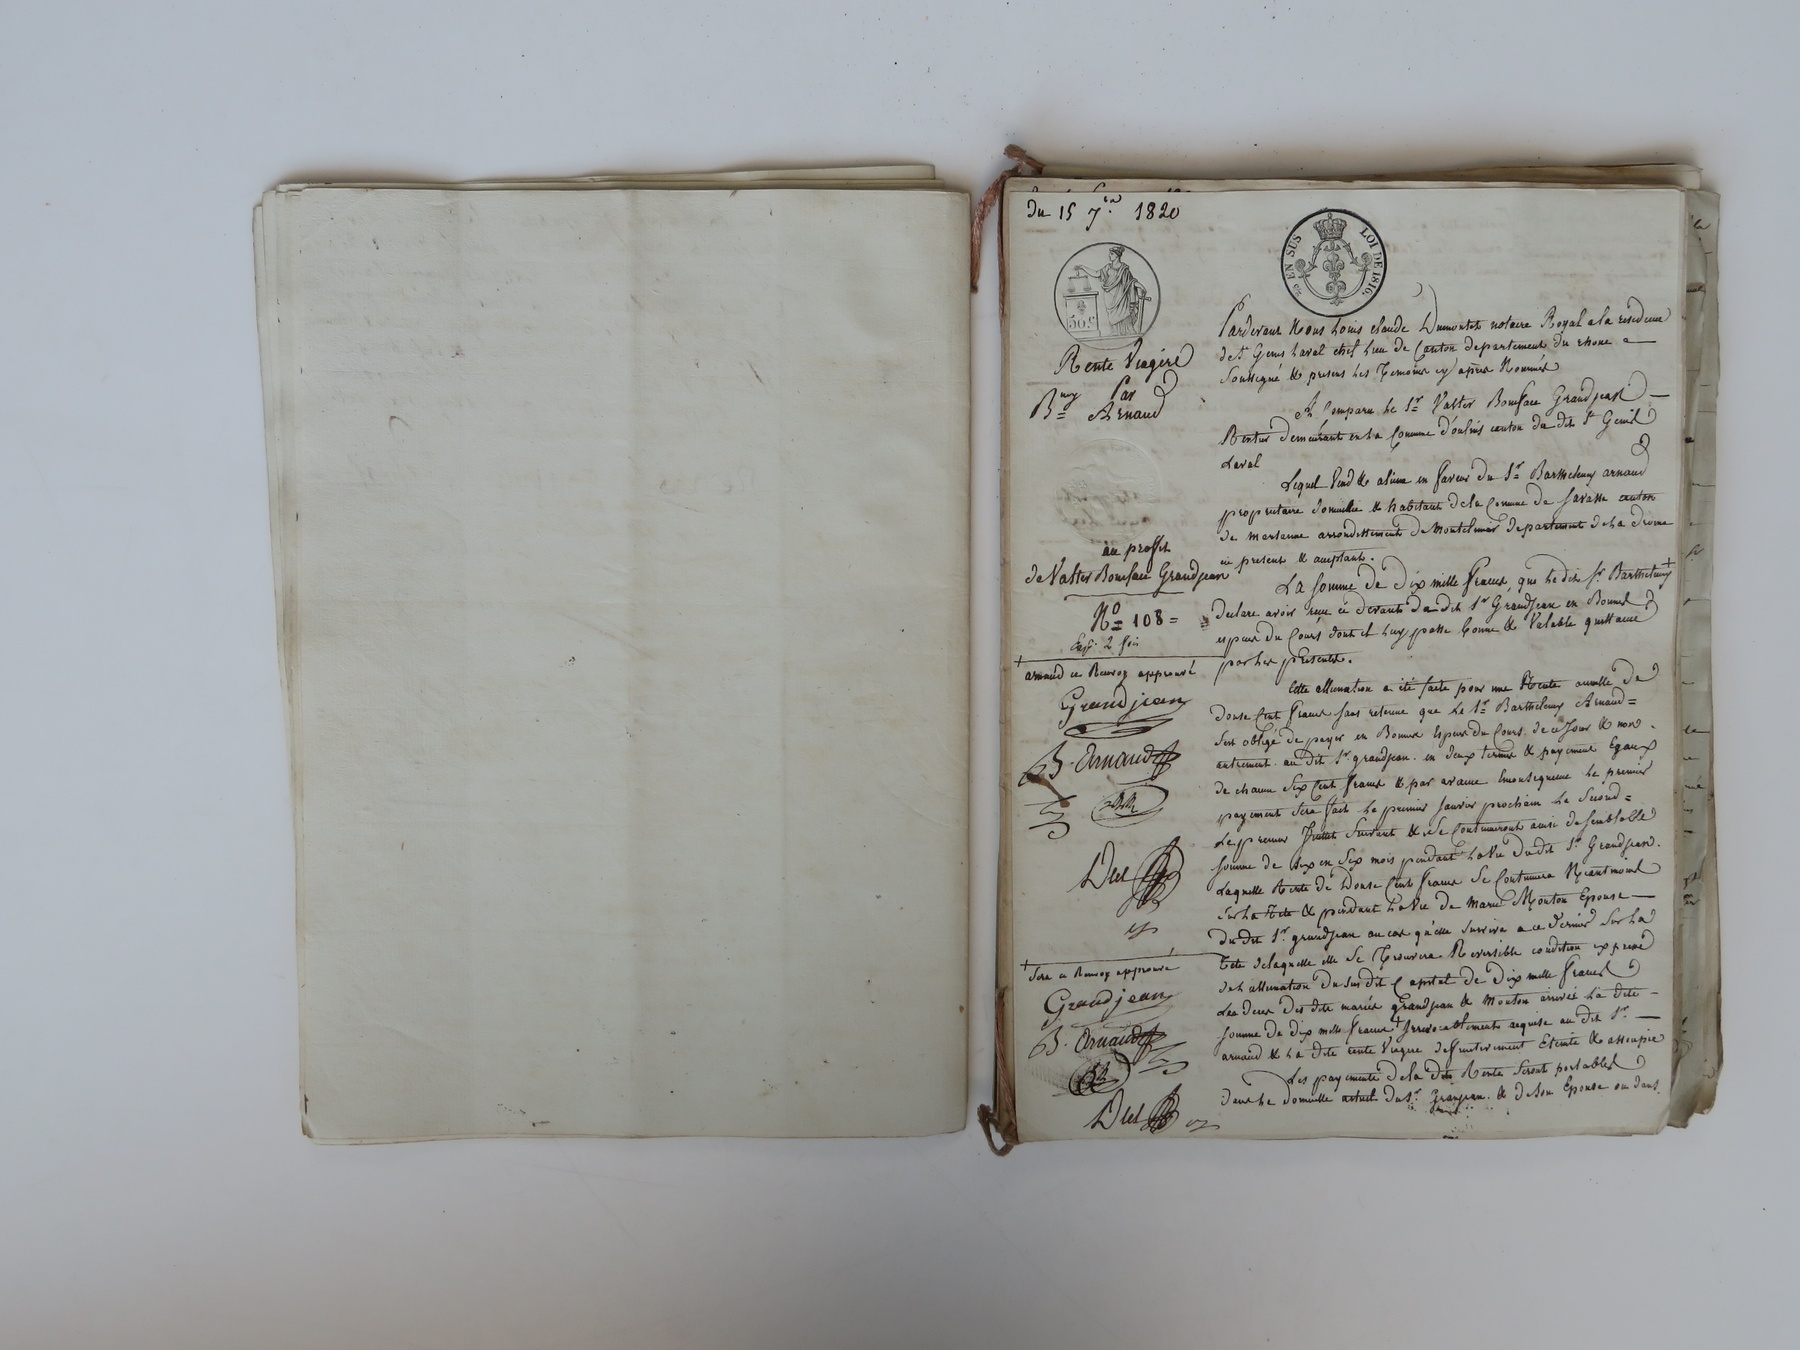 du 15 7.bre 1820
50 c
EN SUS LOI DE 1816.
Rente Viagère
Par
Bmy Arnaud
au proffit
de Valter Boniface Grandjean
No 108 =
Exp. 2 fois
+ arnaud ce Renvoy approuvé
Grandjean
B. Arnaud
+ Sera ce Renvoy approuvé
Grandjean
B. Arnaud
Pardevant Nous Louis claude Dumontet notaire Royal a la residence
de St Genis Laval chef lieu de Canton departement du rhone
Soussigné & presens les Temoins cy après Nommés
A Comparu le Sr Valter Boniface Grandjean
Rentier demeurant en la Commune d'oulins canton du dit St Genis
Laval
Lequel Vend & aliene en faveur du Sr Barthelemy arnaud
proprietaire domicilié & habitant de la Commune de Savasse canton
de marsanne arrondissement de Montelimar departement de la drome
ici present & acceptant.
La Somme de Dix mille francs que le dit Sr Barthelemy +
declare avoir reçu ci devant du dit Sr Grandjean en Bonnes
especes du Cours dont il luy passe bonne & Valable quittance
par les presentes.
Cette allienation a été faite pour une Rente annuelle de
douse Cent francs sans retenue que le Sr Barthelemy Arnaud =
Sera obligé de payer en Bonnes Especes du Cours de ce Jour & non
autrement au dit Sr grandjean en deux termes & payemens Egaux
de chacun Six Cent francs & par avance Enconsequence le premier
payement Sera fait le premier Janvier prochain le Second =
Le premier Juillet Suivant & se Continueront ainsi de Semblable
Somme de six en Six mois pendant la Vie du dit Sr Grandjean.
Laquelle Rente de Douse Cent francs Se Continuera Neantmoins
Sur la Tete & pendant la Vie de Marie Mouton Epouse
du dit Sr grandjean au cas qu'elle Survive a ce Dernier Sur la
Tete de laquelle elle Se Trouvera Reversible condition expresse
de l'allienation du Sus dit Capital de Dix mille francs
Les deux des dits mariés Grandjean & Mouton arrivés la dite
Somme de dix mille francs + Irrevocablement acquise au dit Sr
arnaud & la dite rente Viagere definitivement Eteinte & assoupie
Les payements de la dite Rente Seront portables
dans le domicille actuel du Sr Granjean & de Son Epouse ou dans